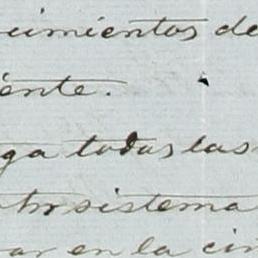 cimientos de
ente.
ga todas las
sistema
ar en la cir